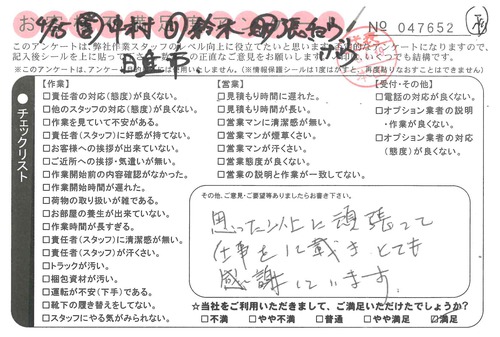 No 047652
このアンケートは、弊社作業スタッフのレベル向上に役立てたいと思います
記入後シールを上に貼って
※このアンケートは、
(※情報保護シールは1度はがすと、再度貼りなおすことはできません)
チェックリスト
【作業】
□責任者の対応(態度)が良くない。
□他のスタッフの対応(態度)が良くない。
□作業を見ていて不安がある。
□責任者(スタッフ)に好感が持てない。
□お客様への挨拶が出来ていない。
□ご近所への挨拶・気遣いが無い。
□作業開始前の内容確認がなかった。
□作業開始時間が遅れた。
□荷物の取り扱いが雑である。
□お部屋の養生が出来ていない。
□作業時間が長すぎる。
□責任者(スタッフ)に清潔感が無い。
□責任者(スタッフ)が汗くさい。
□トラックが汚い。
□梱包資材が汚い。
□運転が不安(下手)である。
□靴下の履き替えをしてない。
□スタッフにやる気がみられない。
【営業】
□見積もり時間に遅れた。
□見積もり時間が長い。
□営業マンに清潔感が無い。
□営業マンが煙草くさい。
□営業マンが汗くさい。
□営業態度が良くない。
□営業の説明と作業が一致してない。
【受付・その他】
□電話の対応が良くない。
□オプション業者の説明
・作業が良くない。
□オプション業者の対応
(態度)が良くない。
その他、ご意見・ご要望等ありましたらお書き下さい。
思った以上に頑張って
仕事をして戴き とても
感謝しています。
☆当社をご利用いただきまして、ご満足いただけたでしょうか?
□不満 □やや不満 □普通 □やや満足 ☑満足